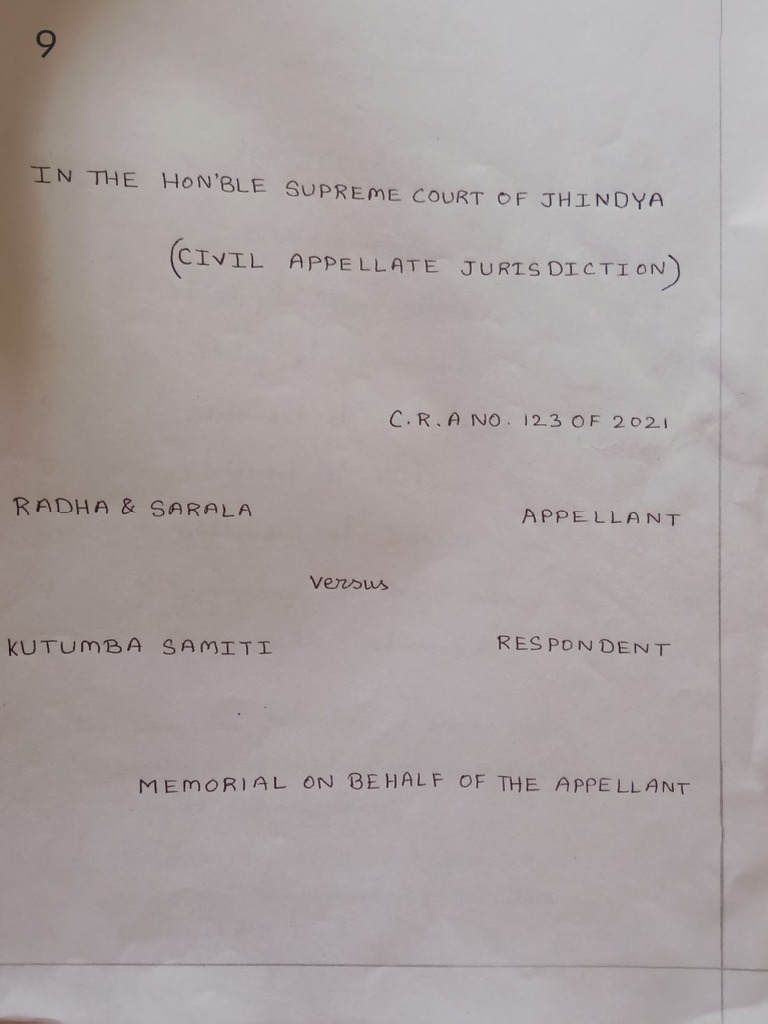 9
IN THE HON'BLE SUPREME COURT OF JHINDYA
(CIVIL APPELLATE JURISDICTION)
C.R.A NO. 123 OF 2021
RADHA & SARALA APPELLANT
versus
KUTUMBA SAMITI RESPONDENT
MEMORIAL ON BEHALF OF THE APPELLANT